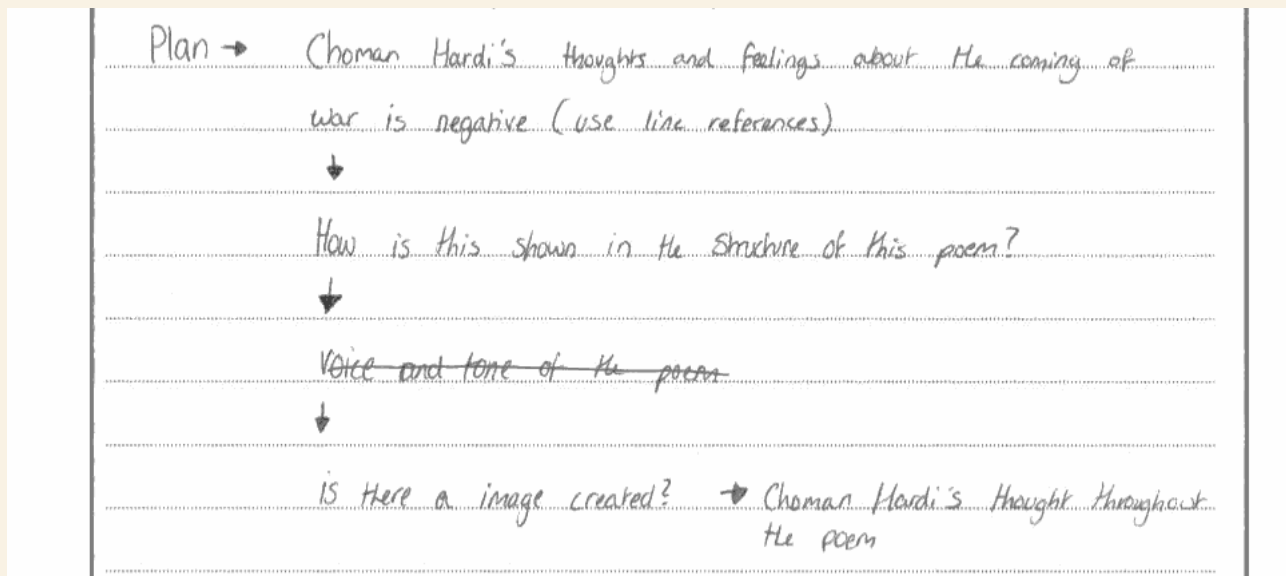 Plan → Choman Hardi's thoughts and feelings about the coming of
war is negative (use line references)
↓
How is this shown in the structure of this poem?
↓
Voice and tone of the poem
↓
is there a image created? → Choman Hardi's thought throughout
the poem